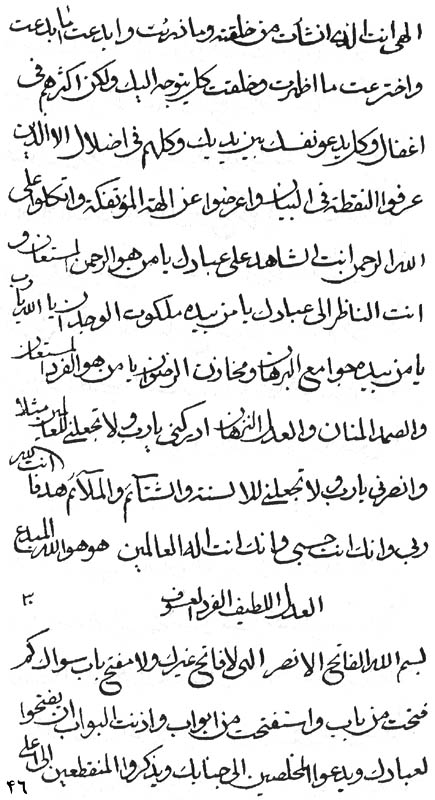 الهی انت الذی انشأت من خلقته وما ذرئت وابدعت ما ابدعت
واخترعت ما اظهرت وخلقت کل یتوجه الیک ولکن اکثرهم فی
اغفال وکل یدعو نفسک بین یدیک وکلهم فی اضلال الا الذین
عرفوا النقطة فی البیان واعرضوا عن الهة المؤتفکة واتکلوا علی
الله الرحمن انت الشاهد علی عبادک یا من هو الرحمن المستعان و
انت الناظر الی عبادک یا من بیده ملکوت الوجدان یا الله یا رب
یا من بیده جوامع البرهان ومخازن الرضوان یا من هو الفرد المستعان
والصمد المنان والعدل ادرکنی یا رب ولا تجعلنی للعالمین مثلا
وانصرنی یا رب ولا تجعلنی للالسنة والشتائم والملائم هدفا انت
ربی وانک انت حسبی وانک انت اله العالمین هو هو الله المبدع
العدل اللطیف الفرد
بسم الله الفاتح الانصر الهی لا فاتح غیرک ولا مفتح باب سواک کم
فتحت من باب واستفتحت من ابواب واذنت البواب ان یفتحوا
لعبادک ویدعوا المخلصین الی جنابک ویذکروا المنقطعین الی اعلی
۴۶